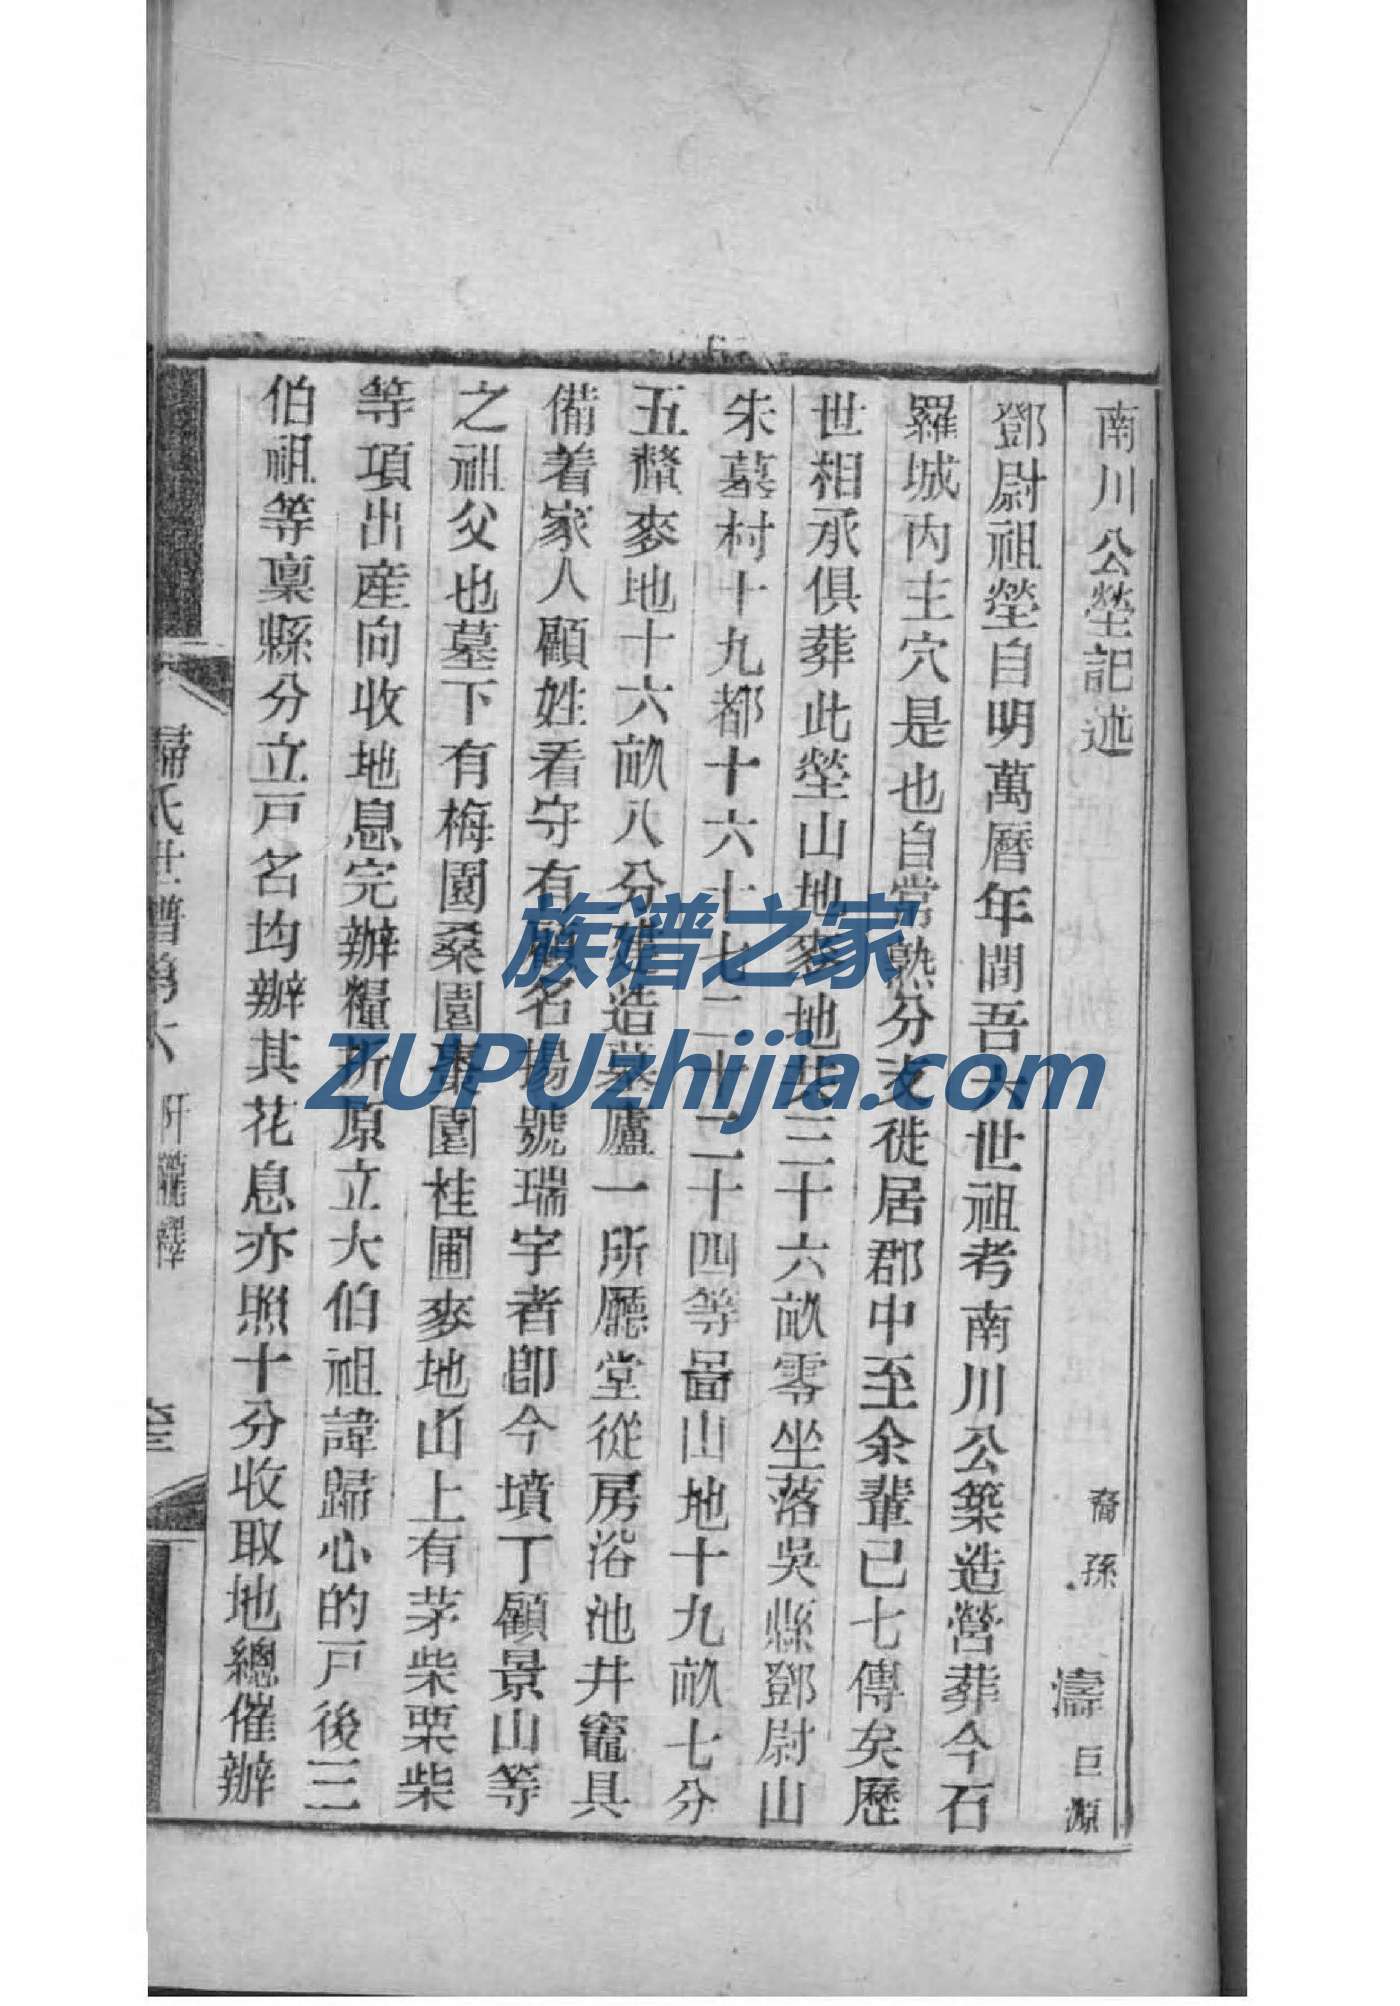 南川公塋記述　裔孫　濤　巨源
鄧尉祖塋自明萬曆年間吾六世祖考南川公築造營葬今石
羅城內主穴是也自常熟分支徙居郡中至余輩已七傳矣歷
世相承俱葬此塋山地麥地共三十六畝零坐落吳縣鄧尉山
朱墓村十九都十六十七二十二十四等啚山地十九畝七分
五釐麥地十六畝八分建造墓廬一所廳堂從房浴池井竈具
備着家人顧姓看守有顧名揚號瑞宇者卽今墳丁顧景山等
之祖父也墓下有梅園桑園棗園桂圃麥地山上有茅柴栗柴
等項出產向收地息完辦糧所原立大伯祖諱歸心的戸後三
伯祖等稟縣分立戸名均辦其花息亦照十分收取地總催辦
歸氏世譜第六
族谱之家
ZUPUzhijia.com